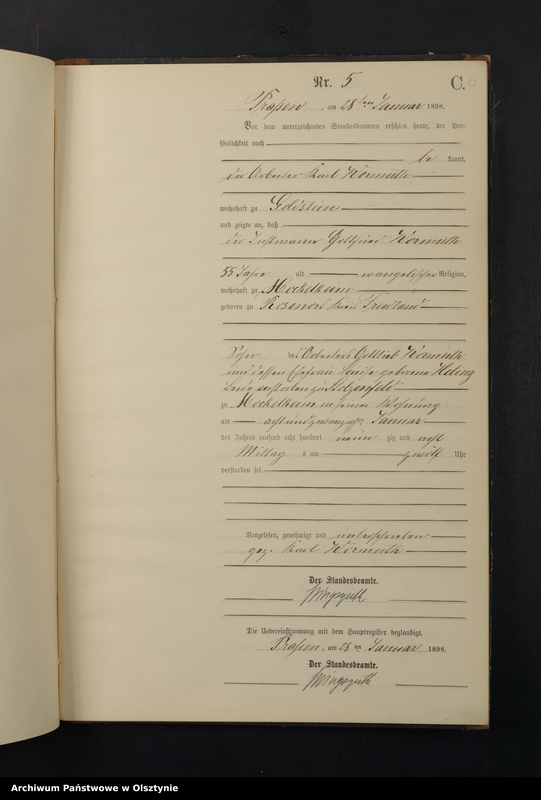 Nr. 5
C. 6
am 28ten Januar 1898.
Vor dem unterzeichneten Standesbeamten erschien heute, der Per-
sönlichkeit nach
be kannt,
der Arbeiter Karl Wormuth
wohnhaft zu Goldstein
und zeigte an, daß
der Instmann Gottfried Wormuth
55 Jahre alt evangelischer Religion,
wohnhaft zu Mockelkeim
geboren zu Rosenort Kreis Friedland
Sohn des Arbeiters Gottlieb Wormuth
und dessen Ehefrau Louise geborene
beide verstorben zu Stolzenfeld
zu Mockelkeim in seiner Wohnung
am achtundzwanzigsten Januar
des Jahres tausend acht hundert neun zig und acht
Mittag s um zwölf Uhr
verstorben sei
Vorgelesen, genehmigt und unterschrieben
gez. Karl Wormuth
Der Standesbeamte.
Die Uebereinstimmung mit dem Hauptregister beglaubigt.
am 28 ten Januar 1898.
Der Standesbeamte.
Archiwum Państwowe w Olsztynie